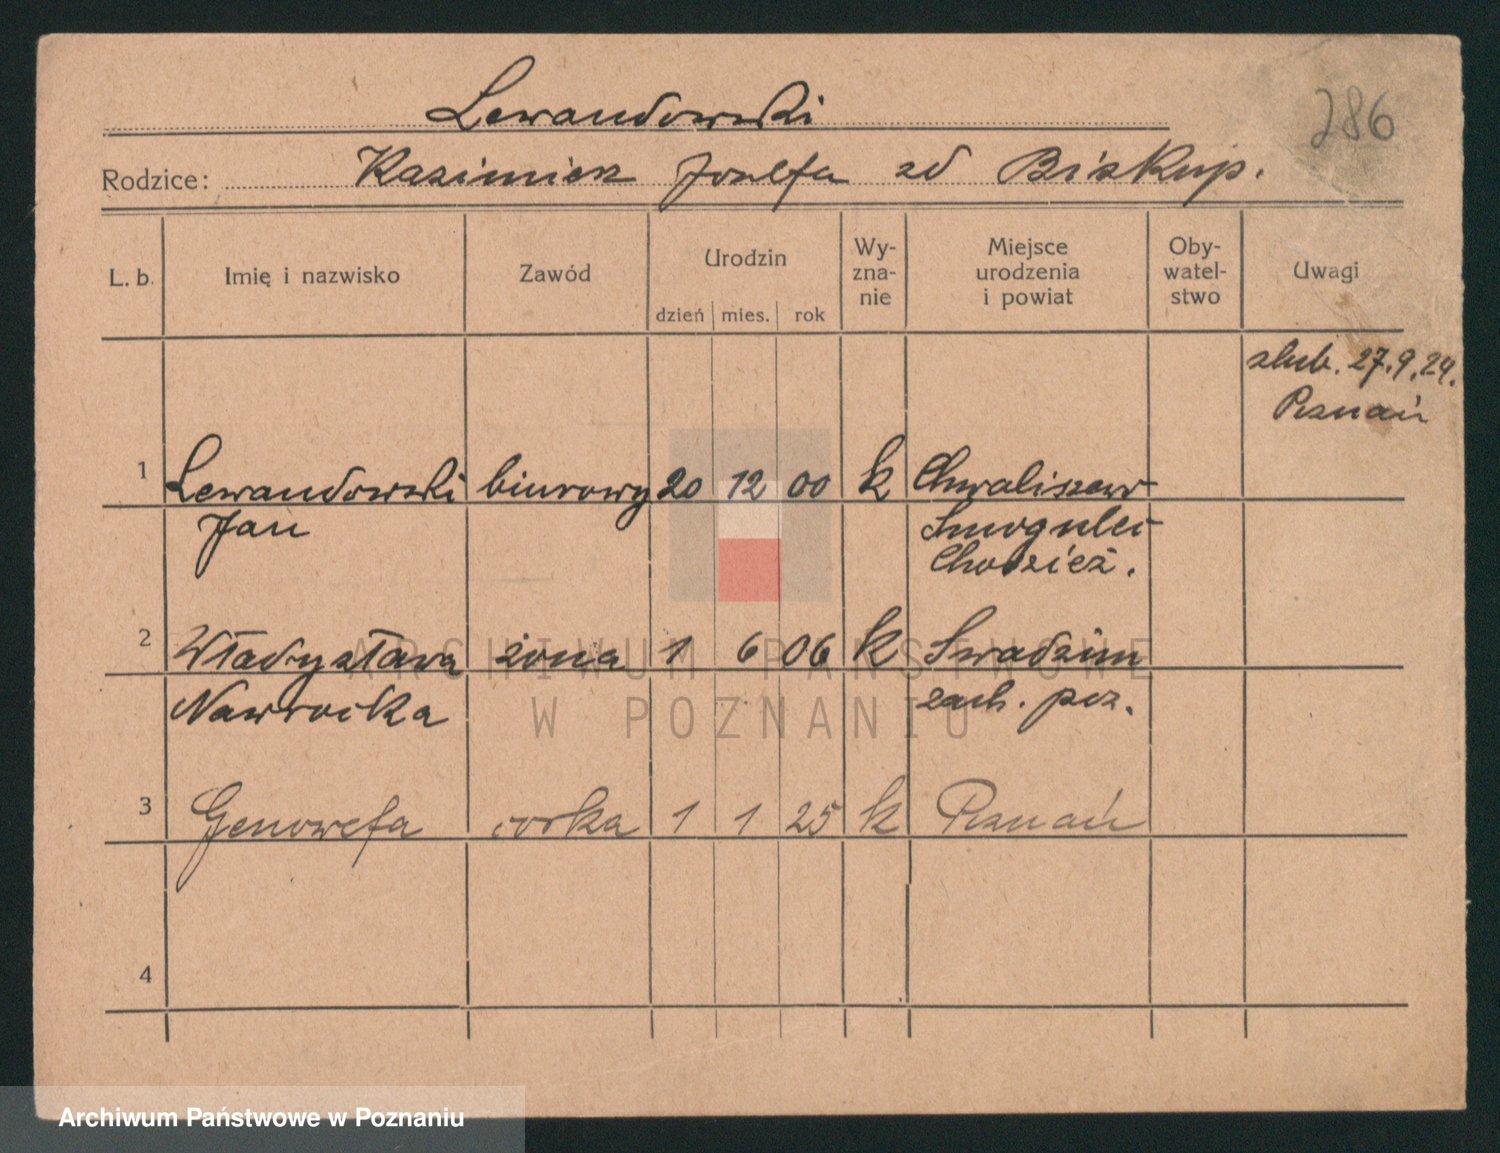 Lewandowski
286
Rodzice: Kazimierz Józefa zd Biskup.
L. b.
Imię i nazwisko
Zawód
Urodzin
dzień mies. rok
Wy-
zna-
nie
Miejsce
urodzenia
i powiat
Oby-
watel-
stwo
Uwagi
ślub. 27.9.24.
Poznań
1 Lewandowski biurowy 20 12 00 k Chwaliszewo
Jan Smogulec
Chodzież.
2 Władysława żona 1 6 06 k Swadzim
Nawrocka zach. poz.
3 Genowefa córka 1 1 25 k Poznań
4
ARCHIWUM PAŃSTWOWE
W POZNANIU
Archiwum Państwowe w Poznaniu